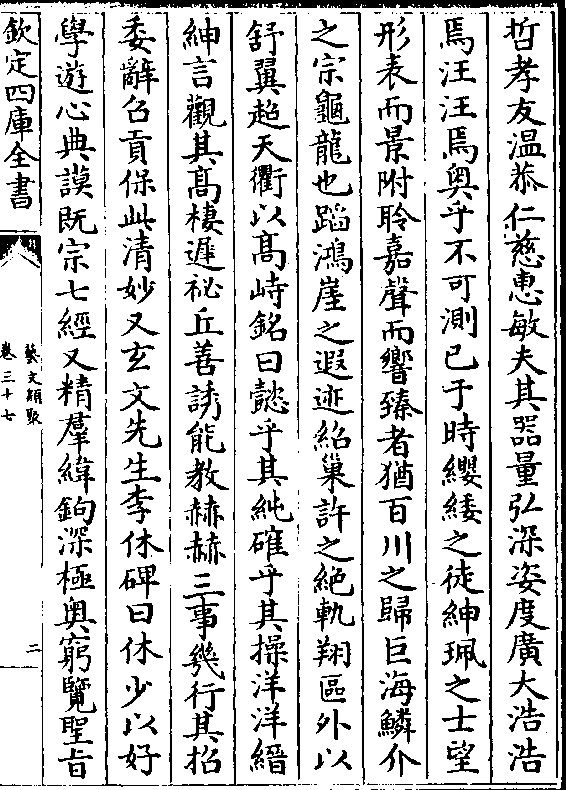 哲孝友温恭仁慈惠敏夫其器量弘深姿度廣大浩浩
焉汪汪焉奥乎不可測已于時纓緌之徒紳珮之士望
形表而景附聆嘉聲而響臻者猶百川之歸巨海鱗介
之宗龜龍也蹈鴻崖之遐迹紹巢許之絶軌翔區外以
舒翼超天衢以髙峙銘曰懿乎其純確乎其操洋洋縉
紳言觀其髙棲遲祕丘善誘能教赫赫三事幾行其招
委辭召貢保此清妙又玄文先生李休碑曰休少以好
學遊心典謨既宗七經又精羣緯鉤深極奥窮覽聖旨
欽定四庫全書
藝文類聚
卷三十七
二